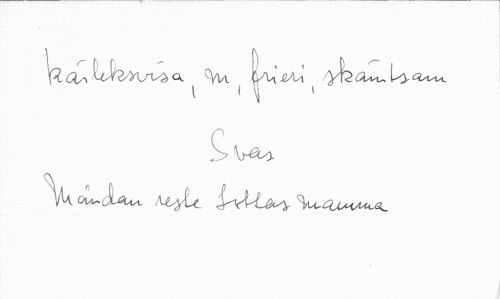 kärleksvisa, m, frieri, skämtsam
Svas
Måndan reste Lottas mamma